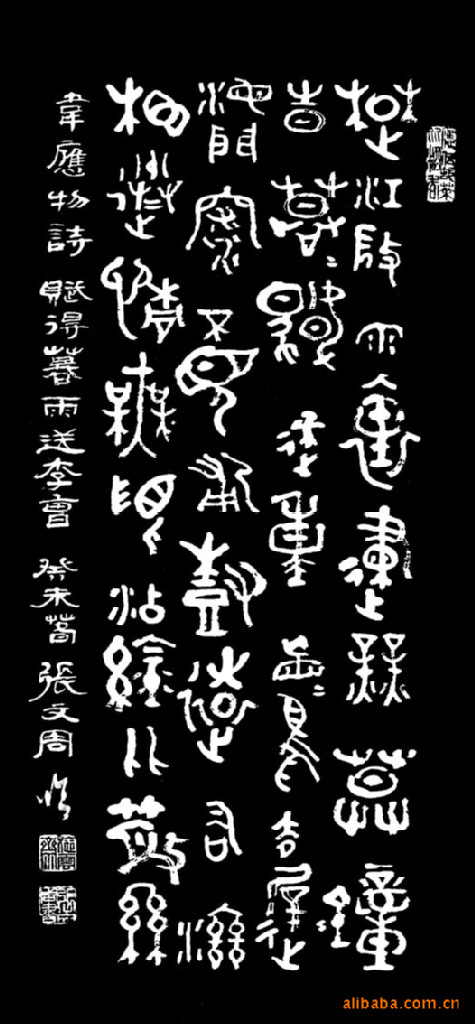 楚江微雨裏建業暮鐘
時漠〻帆來重冥〻鳥去遲
海門深不見浦樹遠含滋
相送情無限沾襟比散絲
韋應物詩 賦得暮雨送李曹 癸未 張文周
alibaba.com.cn